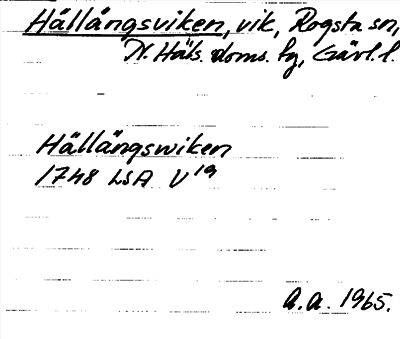 Hällängsviken, vik, Rogsta sn,
N. Häls. doms. tg, Gävl. l.
Hällängswiken
1748 LSA V¹⁹
A. A. 1965.